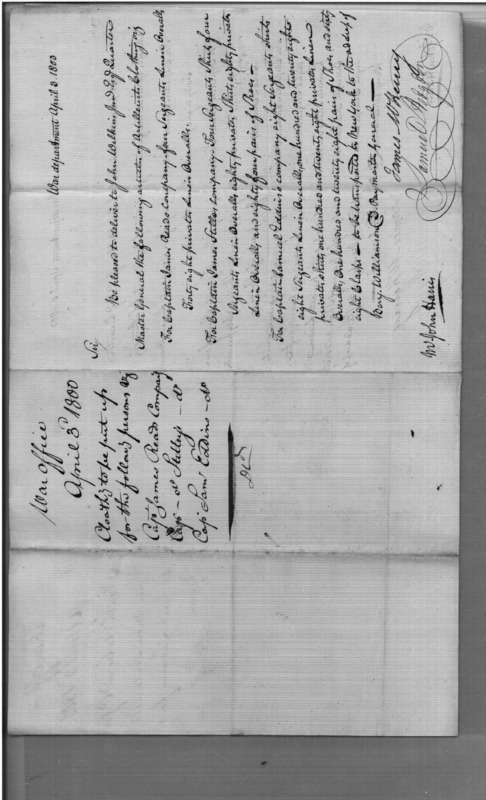 War department April 3. 1800
Sir,
Be pleased to deliver to John Wilkins Jun'r Esq Quarter
Master General the following articles of Artillerists clothing viz
For Captain James Reads Company. four Sergeants Linen Overalls
Forty eight privates Linen Overalls.
For Captain James Stilles Company. Four Sergeants Shirts four
Sergeants Linen Overalls, eighty privates Shirts, eighty privates
Linen Overalls, and eighty four pair of Shoes —
For Captain Samuel Eddins's company eight Sergeants shirts
eight Sergeants Linen Overalls, one hundred and twenty eight
privates shirts, one hundred and twenty eight privates Linen
Overalls, One hundred and twenty eight pair of Shoes, and sixty
eight Clasps — to be transported to New York to the address of
Benj. Williamson Dy. Paymaster General —
James McHenry
Samuel Hodgdon
Mr John Harris
War Office
April 3d 1800
Cloath'g to be put up
for the follow'g persons viz
Capt James Reads Company
Capt - do Stelleys - do
Capt Saml Eddins - do